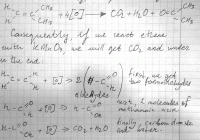 H C = C CH₃ CH₃ + 4[O] → CO₂ + H₂O + O=C CH₃ CH₃
Consequently, if we react ethene
with KMnO₄ we will get CO₂ and water
in the end.
H C = C H + [O] → 2 (H-C=O H) first, we get two formaldehydes
aldehydes
H-C=O H + [O] → H-C=O OH next, 2 molecules of methanoic acid
H-C=O OH + [O] → CO₂ + H₂O finally, carbon dioxide and water.